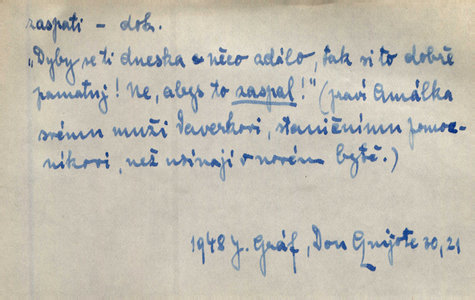 zaspati – dok.
„Dyby se ti dneska něco zdálo, tak si to dobře
pamatuj! Ne, abys to zaspal!“ (praví Amálka
svému muži Javerkovi, staničnímu pomoc-
níkovi, než usínají v novém bytě.)
1948 J. Gráf, Don Quijote 20, 21